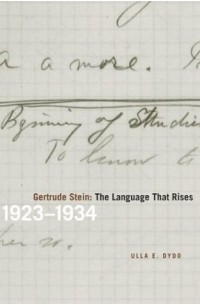 a a more.
Beginning of Studies
To know to
Gertrude Stein: The Language That Rises
1923–1934
her so.
ULLA E. DYDO